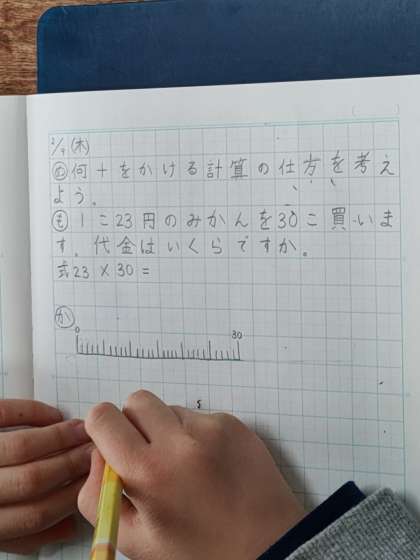 2/9(木)
め何十をかける計算の仕方を考え
よう。
も1こ23円のみかんを30こ買いま
す。代金はいくらですか。
式23×30=
か
0 30